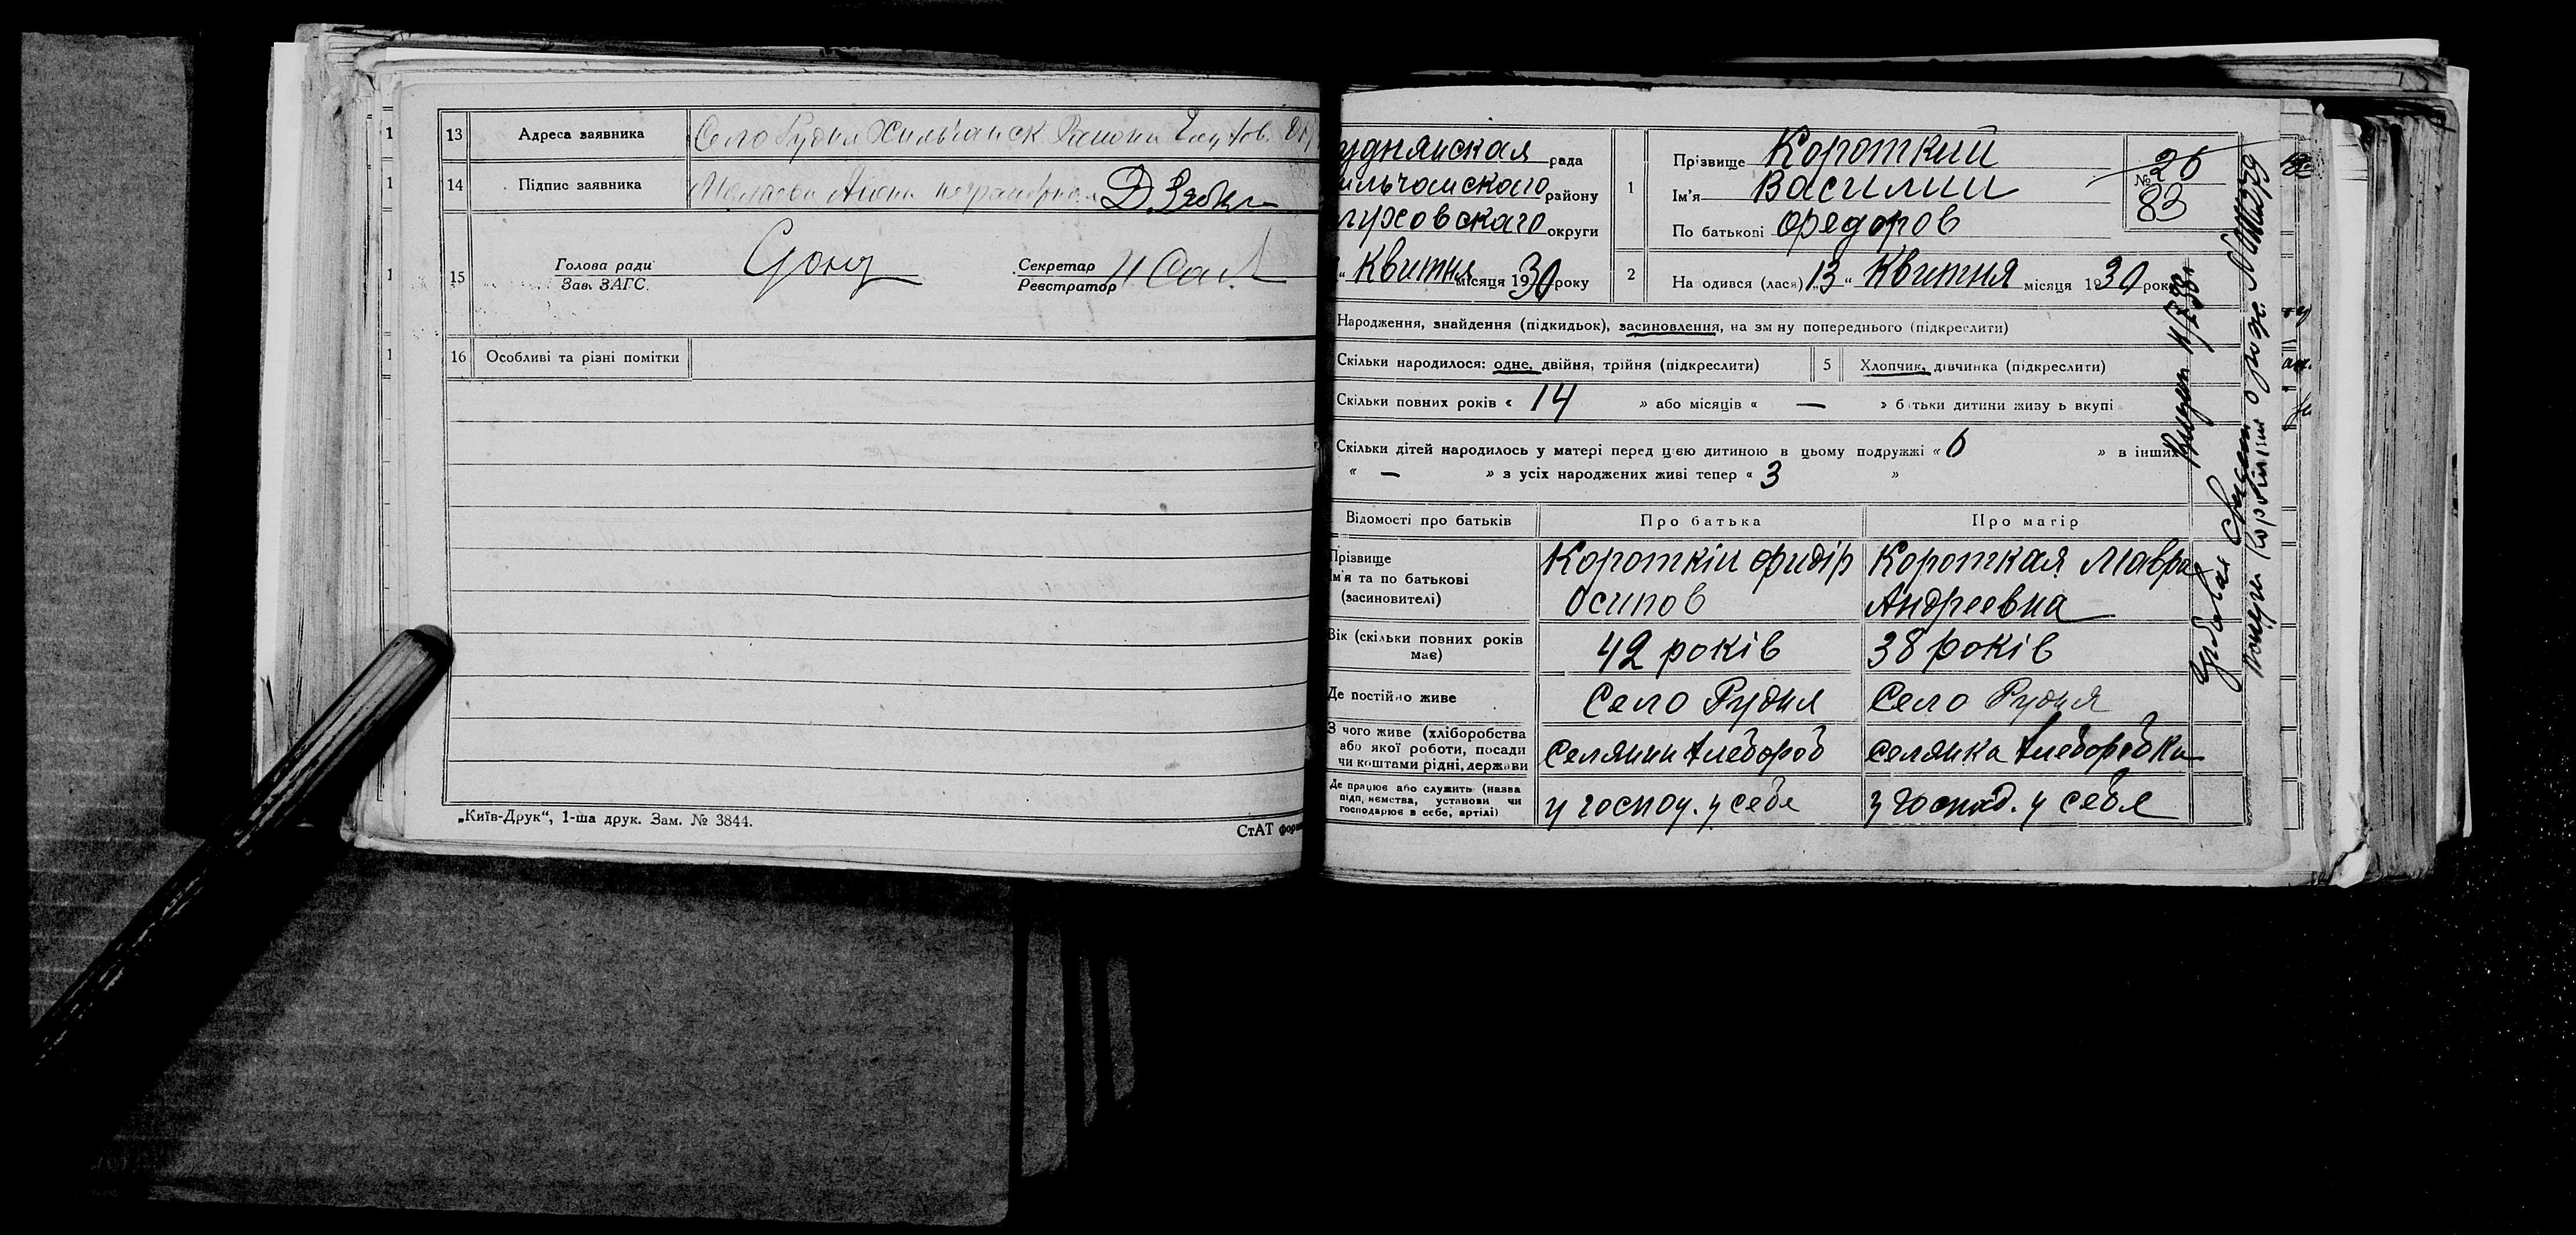 13 Адреса заявника Село Рудня Хильчанск Района
14 Підпис заявника
15 Голова ради
Зав. ЗАГС.
Секретар
Реєстратор
16 Особливі та різні помітки
„Київ-Друк“, 1-ша друк. Зам. № 3844.
СтАТ
уднянская рада
ильчанского району
луховскаго округи
Квитня місяця 1930 року
1 Прізвище Короткий
Ім'я Василий
По батькові Федоров
№ 26
83
2 На одився (лася) „13“ Квитня місяця 1930 року
Народження, знайдення (підкидьок), засиновлення, на зм ну попереднього (підкреслити)
Скільки народилося: одне, двійня, трійня (підкреслити) 5 Хлопчик, дівчинка (підкреслити)
Скільки повних років « 14 » або місяців « — » б тьки дитини живу ь вкупі
Скільки дітей народилось у матері перед цією дитиною в цьому подружжі « 6 » в інших
« — » з усіх народжених живі тепер « 3 »
Відомості про батьків Про батька Про матір
Прізвище
ім'я та по батькові
(засиновителі)
Короткій Фидір
Осипов
Короткая Мавра
Андреевна
Вік (скільки повних років
має)
42 років 38 років
Де постійно живе Село Рудня Село Рудня
З чого живе (хліборобства
або якої роботи, посади
чи коштами рідні, держави
Селянин хлебороб Селянка хлеборобка
Де працює або служить (назва
підп, иємства, установи чи
господарює в себе, артілі)
у господ. у себе у господ. у себя